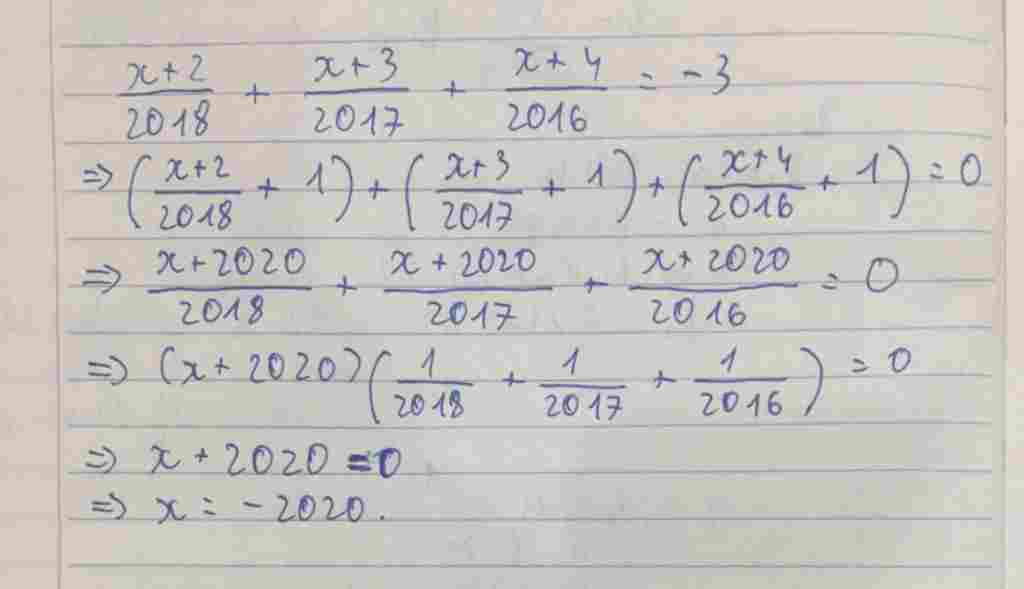 x+2/2018 + x+3/2017 + x+4/2016 = -3
⇒ (x+2/2018 + 1) + (x+3/2017 + 1) + (x+4/2016 + 1) = 0
⇒ x+2020/2018 + x+2020/2017 + x+2020/2016 = 0
⇒ (x+2020)(1/2018 + 1/2017 + 1/2016) = 0
⇒ x+2020=0
⇒ x = -2020.